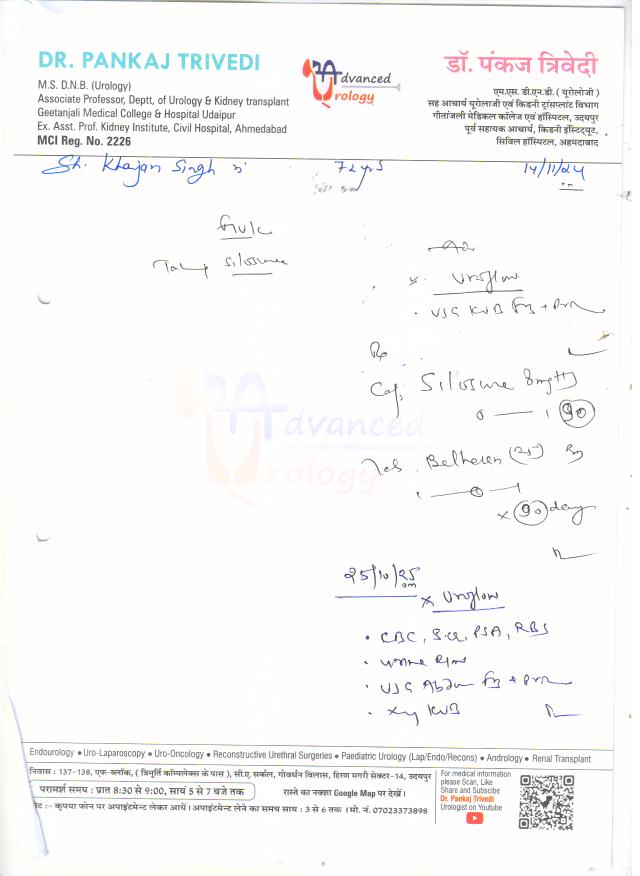 DR. PANKAJ TRIVEDI
M.S. D.N.B. (Urology)
Associate Professor, Deptt. of Urology & Kidney transplant
Geetanjali Medical College & Hospital Udaipur
Ex. Asst. Prof. Kidney Institute, Civil Hospital, Ahmedabad
MCI Reg. No. 2226
Advanced
Urology
डॉ. पंकज त्रिवेदी
एम.एस. डी.एन.बी. ( यूरोलोजी )
सह आचार्य यूरोलोजी एवं किडनी ट्रांसप्लांट विभाग
गीतांजली मेडिकल कॉलेज एवं हॉस्पिटल, उदयपुर
पूर्व सहायक आचार्य, किडनी इंस्टिट्यूट,
सिविल हॉस्पिटल, अहमदाबाद
Sh. Khajan Singh 72 yrs 14/11/24
Adv
Uroflow
USG KUB
Rx
Cap. 8mg
0 — 1 90
Tab. (25)
1 — 0 — 1
x 90 days
25/10/25
x Uroflow
• CBC, S.Cr, PSA, RBS
•
• USG
• Xray KUB
Advanced
Urology
Endourology • Uro-Laparoscopy • Uro-Oncology • Reconstructive Urethral Surgeries • Paediatric Urology (Lap/Endo/Recons) • Andrology • Renal Transplant
निवास : 137-138, एफ-ब्लॉक, ( त्रिमुर्ति कॉम्पलेक्स के पास ), सी.ए. सर्कल, गोवर्धन विलास, हिरण मगरी सेक्टर-14, उदयपुर
परामर्श समय : प्रात 8:30 से 9:00, सायं 5 से 7 बजे तक रास्ते का नक्शा Google Map पर देखें।
:- कृपया फोन पर अपाइंटमेन्ट लेकर आयें। अपाइंटमेन्ट लेने का समय साय : 3 से 6 तक । मो. नं. 07023373898
For medical information
please Scan, Like
Share and Subscibe
Dr. Pankaj Trivedi
Urologist on Youtube